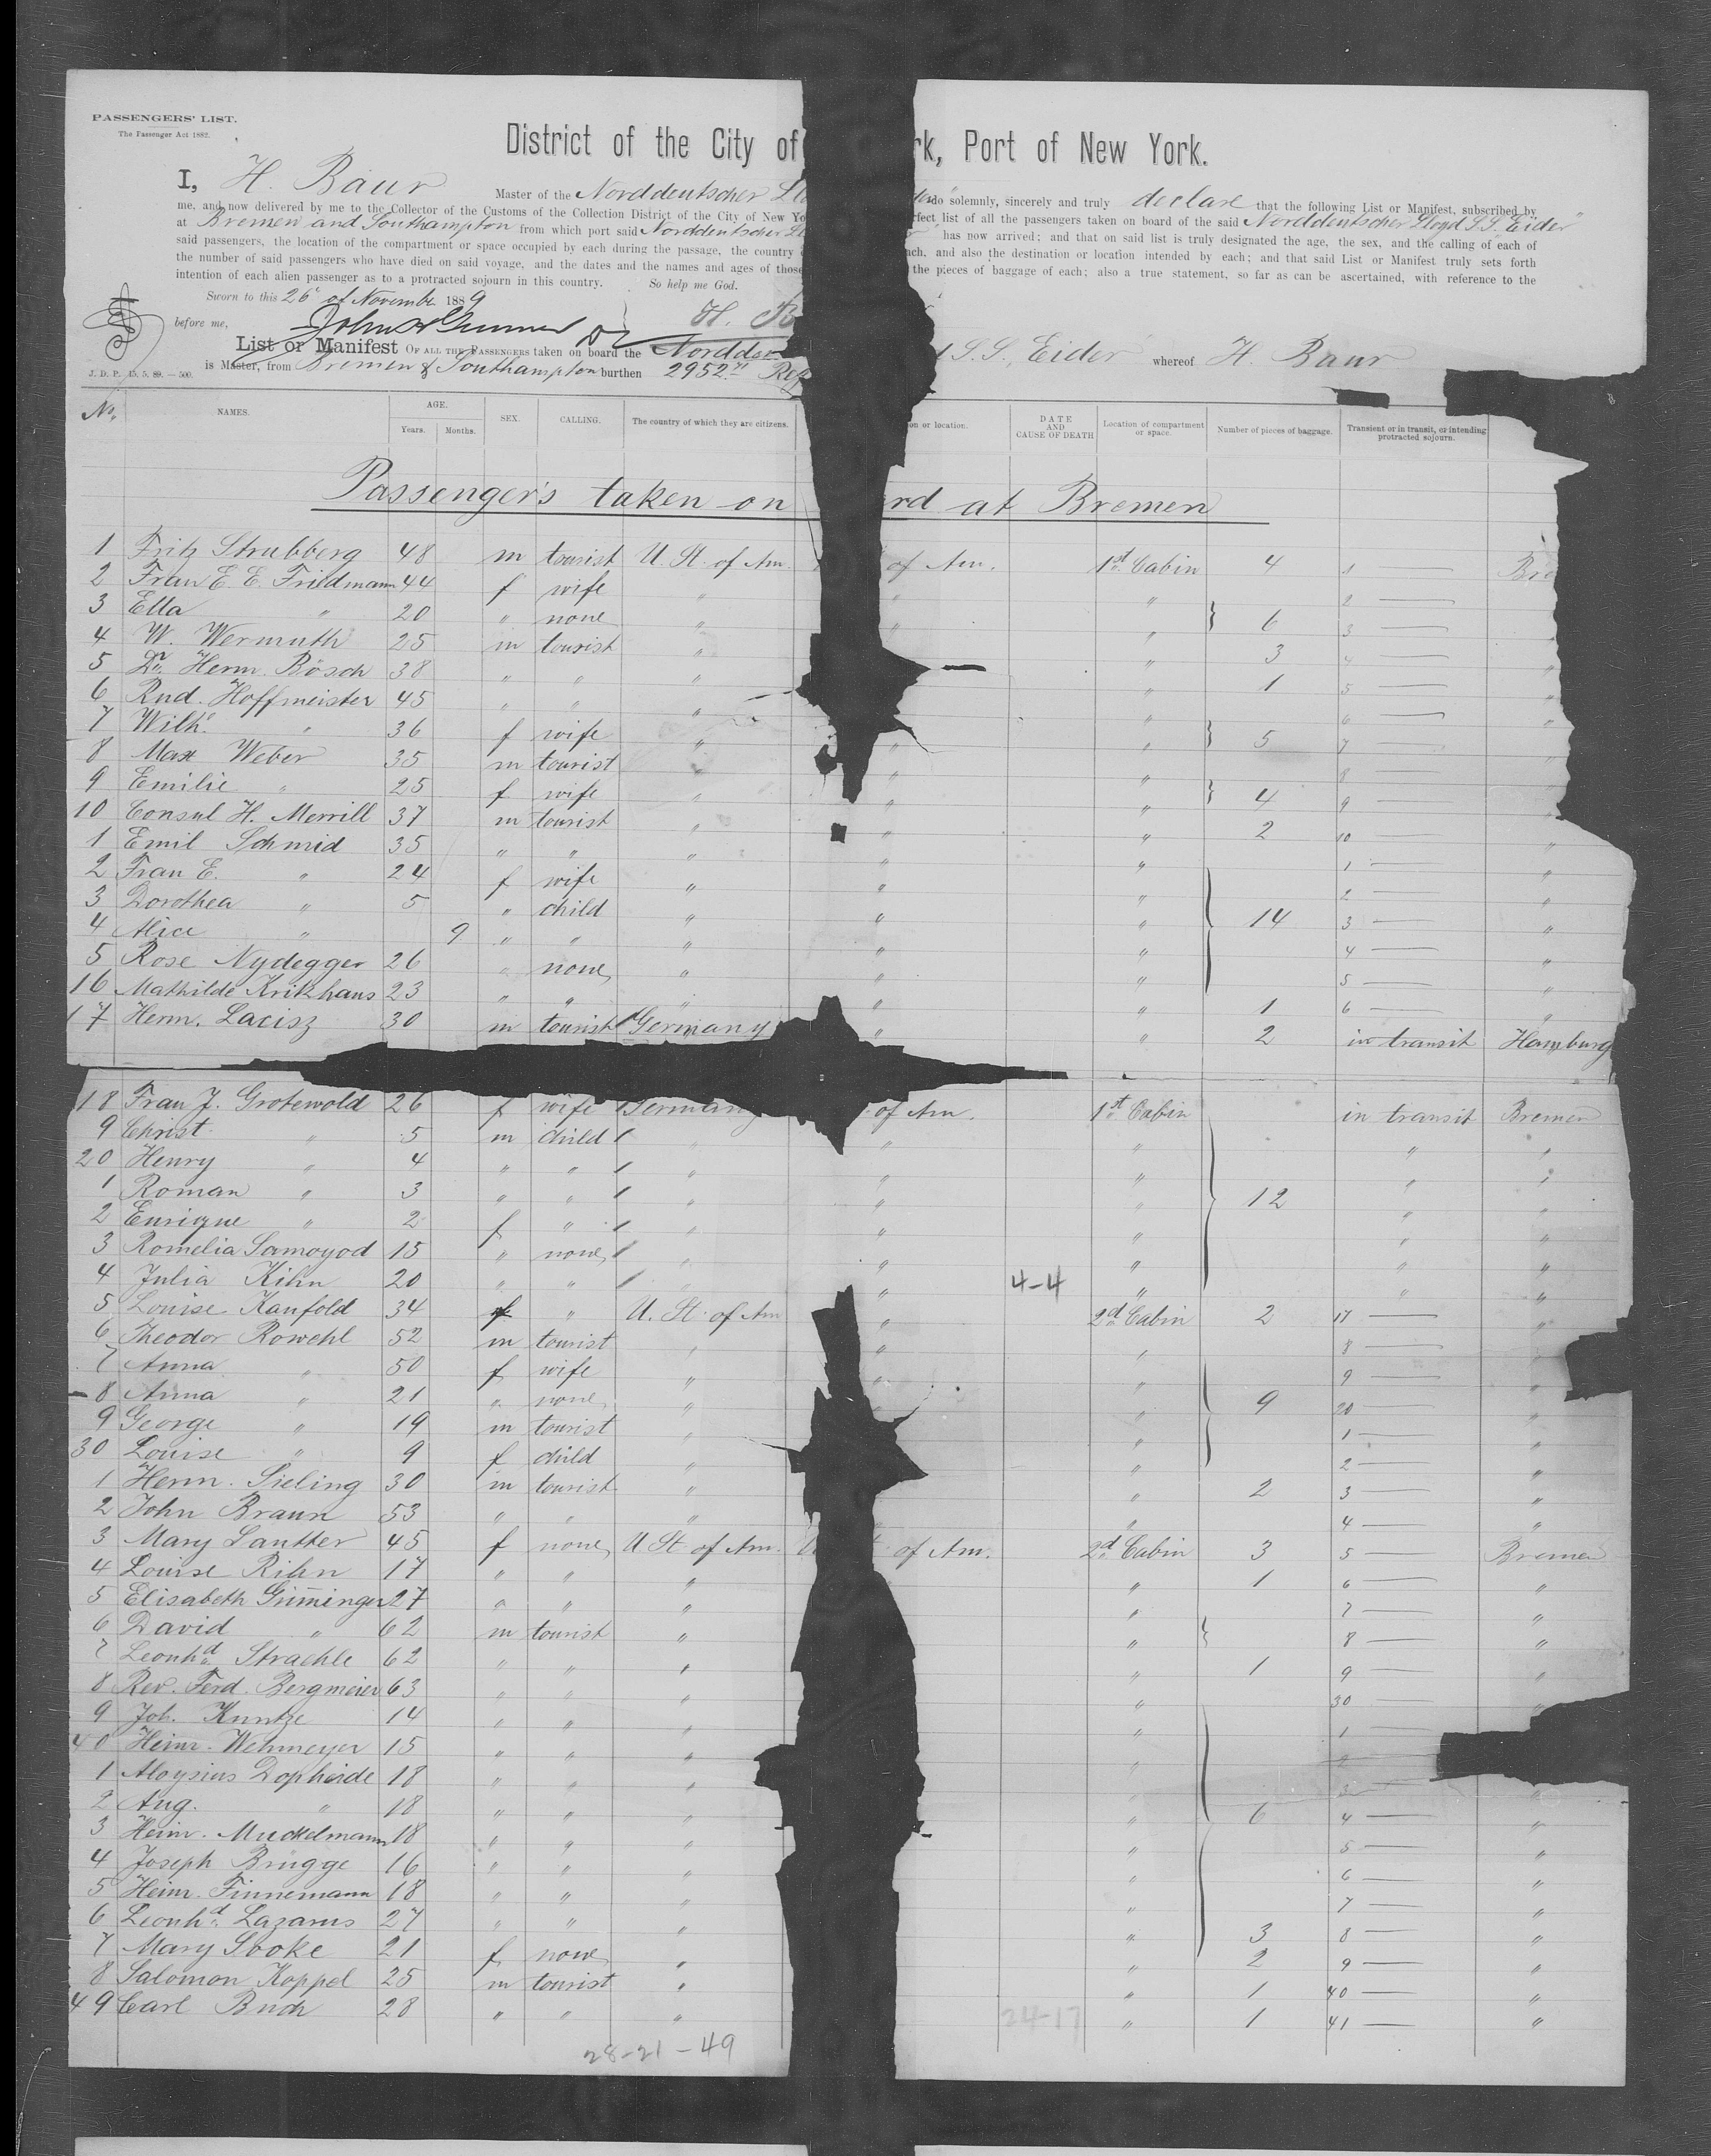 PASSENGERS' LIST.
The Passenger Act 1882.
District of the City of rk, Port of New York.
I, H. Baur Master of the Norddeutscher Ll do solemnly, sincerely and truly declare that the following List or Manifest, subscribed by
me, and now delivered by me to the Collector of the Customs of the Collection District of the City of New Yo rfect list of all the passengers taken on board of the said Norddeutscher Lloyd S.S. "Eider"
at Bremen and Southampton from which port said Norddeutscher Ll has now arrived; and that on said list is truly designated the age, the sex, and the calling of each of
said passengers, the location of the compartment or space occupied by each during the passage, the country ach, and also the destination or location intended by each; and that said List or Manifest truly sets forth
the number of said passengers who have died on said voyage, and the dates and the names and ages of those the pieces of baggage of each; also a true statement, so far as can be ascertained, with reference to the
intention of each alien passenger as to a protracted sojourn in this country. So help me God.
Sworn to this 26 of November 1889
before me, H. B
List or Manifest OF ALL THE PASSENGERS taken on board the Nordde S.S. "Eider" whereof H. Baur
J. D. P. 15. 5. 89. — 500. is Master, from Bremen & Southampton burthen 2952
No. NAMES. AGE. Years. Months. SEX. CALLING. The country of which they are citizens. on or location. DATE AND CAUSE OF DEATH Location of compartment or space. Number of pieces of baggage. Transient or in transit, or intending protracted sojourn.
Passengers taken on rd at Bremen
1 Fritz Strubberg 48 m tourist U. St. of Am. of Am. 1st Cabin 4 1 — Bre
2 Frau E. E. Friedmann 44 f wife " " " 2 —
3 Ella " 20 " none " " } 6 3 —
4 W. Wermuth 25 m tourist " " 3 4 — "
5 Dr. Herm. Bösch 38 " " " " 1 5 — "
6 Rud. Hoffmeister 45 " " " " 6 — "
7 Wilh. " 36 f wife " " " } 5 7 —
8 Max Weber 35 m tourist " " " 8 —
9 Emilie " 25 f wife " " " } 4 9 —
10 Consul H. Merrill 37 m tourist " " " 2 10 —
1 Emil Schmid 35 " " " " " 1 — "
2 Frau E. " 24 f wife " " " 2 — "
3 Dorothea " 5 " child " " " 14 3 — "
4 Alice " 9 " " " " " 4 — "
5 Rose Nydegger 26 " none " " " 5 — "
16 Mathilde Krikhaus 23 " " " " " 1 6 — "
17 Herm. Lacisz 30 m tourist Germany " " 2 in transit Hamburg
18 Frau J. Grotewold 26 f wife Germany of Am. 1st Cabin in transit Bremen
9 Christ " 5 m child " " " " "
20 Henry " 4 " " " " " " "
1 Roman " 3 " " " " " 12 " "
2 Enrique " 2 f " " " " " "
3 Romelia Samoyod 15 " none " " " " "
4 Julia Kihn 20 " " " " 4-4 " " "
5 Louise Kaufold 34 f " U. St. of Am " 2d Cabin 2 17 — "
6 Theodor Rowehl 52 m tourist " " " 8 —
7 Anna " 50 f wife " " " 9 — "
8 Anna " 21 " none " " 9 20 — "
9 George " 19 m tourist " " 1 — "
30 Louise " 9 f child " " 2 — "
1 Herm. Sieling 30 m tourist " " 2 3 — "
2 John Braun 53 " " " " 4 — "
3 Mary Lautter 45 f none U St. of Am. U of Am. 2d Cabin 3 5 — Bremen
4 Louise Rihn 17 " " " " 1 6 — "
5 Elisabeth Gimminger 27 " " " " 7 — "
6 David " 62 m tourist " " } 8 — "
7 Leonhd. Straehle 62 " " " " 1 9 — "
8 Rev. Ferd. Bergmeier 63 " " " " 30 — "
9 Joh. Kuntze 14 " " " " 1 —
40 Heinr. Wehmeyer 15 " " " " 2 —
1 Aloysius Dopheide 18 " " " " 3 — "
2 Aug. " 18 " " " " 6 4 — "
3 Heinr. Muckelmann 18 " " " " 5 — "
4 Joseph Brügge 16 " " " " 6 — "
5 Heinr. Finnemann 18 " " " " 7 — "
6 Leonhd. Lazarus 27 " " " " 3 8 — "
7 Mary Sooke 21 f none " " 2 9 — "
8 Salomon Koppel 25 m tourist " " 1 40 — "
49 Carl Buch 28 " " " 24-17 " 1 41 — "
28-21-49